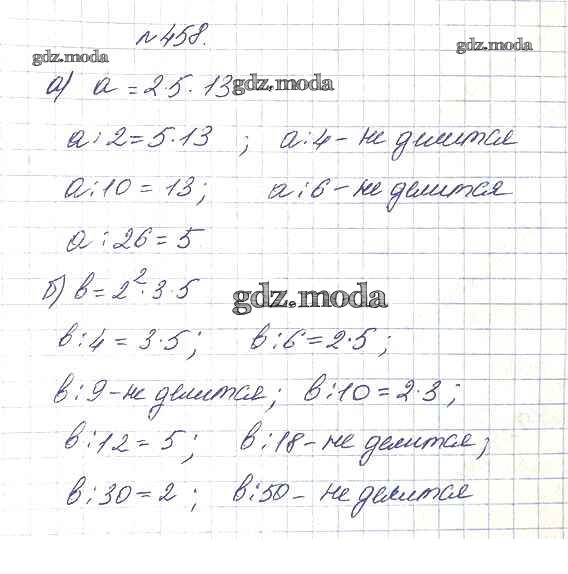 №458.
gdz.moda gdz.moda
а) a = 2·5·13 gdz.moda
a : 2 = 5·13 ; a : 4 - не делится
a : 10 = 13 ; a : 6 - не делится
a : 26 = 5
б) b = 2²·3·5 gdz.moda
b : 4 = 3·5 ; b : 6 = 2·5 ;
b : 9 - не делится ; b : 10 = 2·3 ;
b : 12 = 5 ; b : 18 - не делится ;
b : 30 = 2 ; b : 50 - не делится